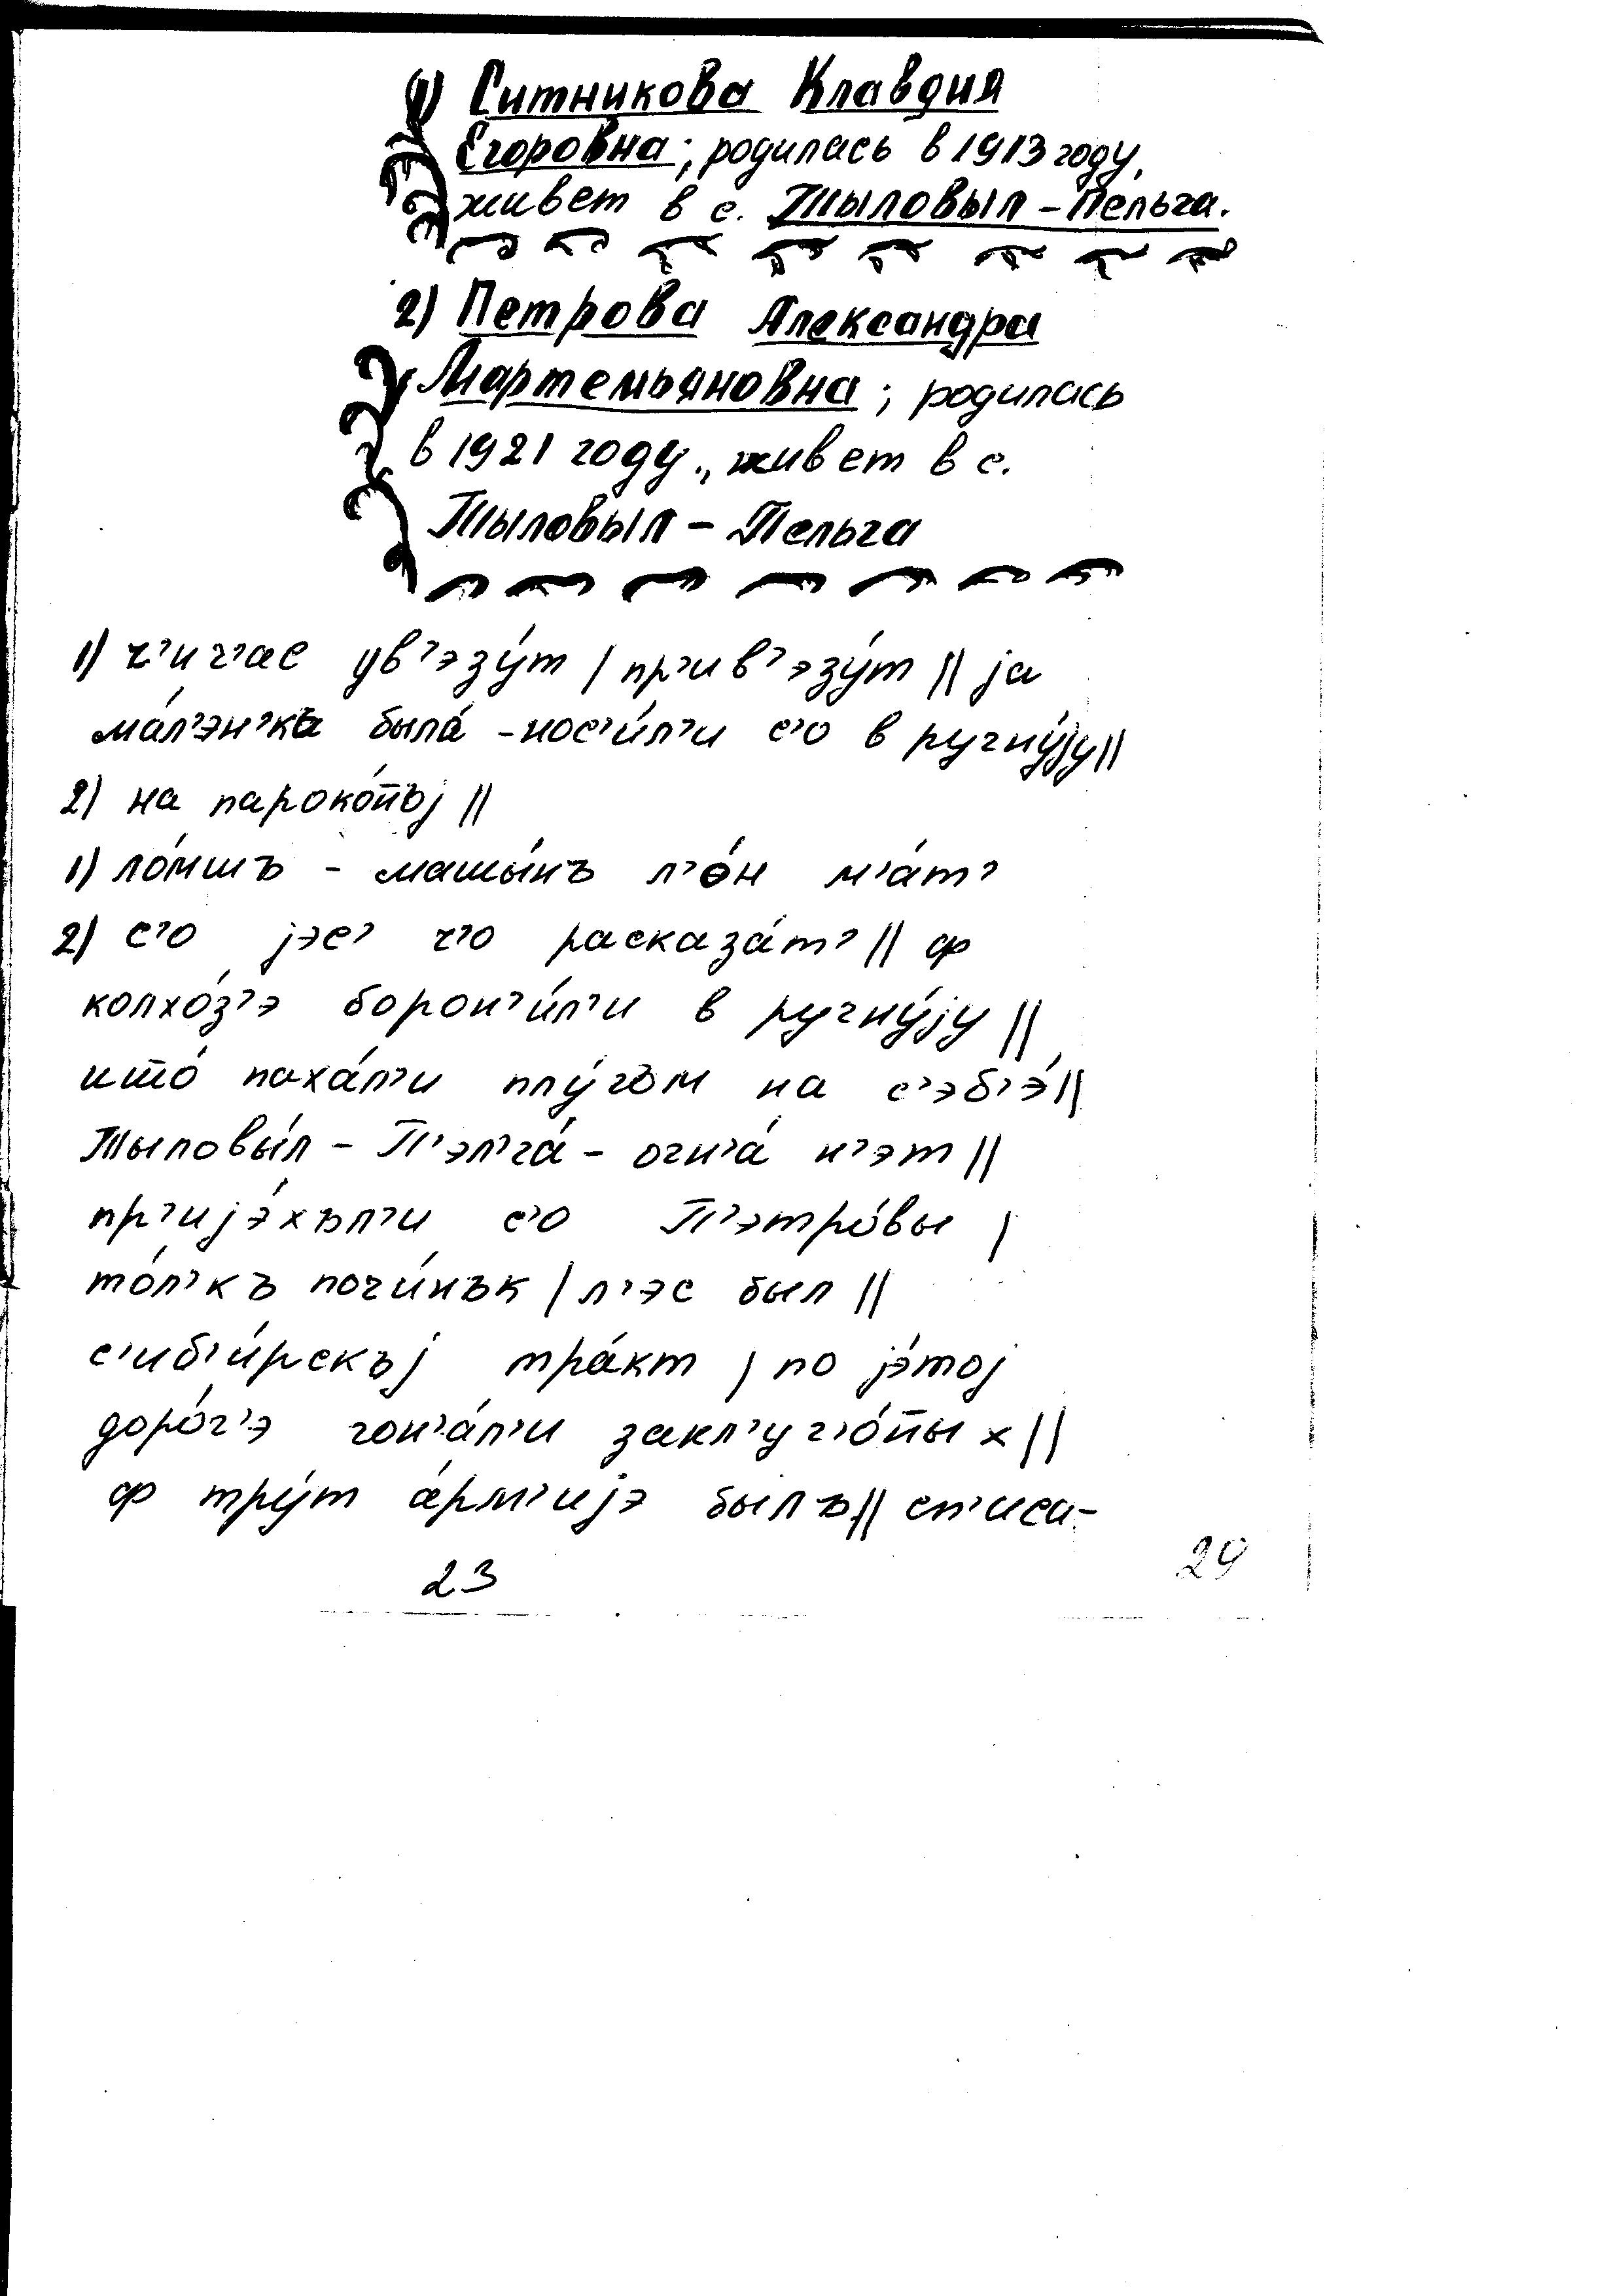 1) Ситникова Клавдия
Егоровна; родилась в 1913 году,
живет в с. Тыловыл-Пельга.
2) Петрова Александра
Мартемьяновна; родилась
в 1921 году., живет в с.
Тыловыл-Пельга
1) ч’ич’ас ув’эзу́т | пр’ив’эзу́т || ја
ма́л’эн’ка была́ - нос’и́л’и с’о в ручну́ју ||
2) на пароко́н̅ъј ||
1) ло́мшъ - машы́нъ л’о́н м’а́т’
2) с’о јэс’ ч’о расказа́т’ || ф
колхо́з’э борон’и́л’и в ручну́ју ||
ишо́ паха́л’и плу́гъм на с’эб’э́ ||
Тыловы́л - П’эл’га́ - огн’а́ н’эт ||
пр’ијэ́хъл’и с’о П’этро́вы |
то́л’къ почи́нък | л’эс был ||
с’иб’и́рскъј тра́кт | по јэ́тој
доро́г’э гон’а́л’и закл’уч’о́н̅ых ||
ф тру́т а́рм’ијэ былъ || сп’иса-
23
24